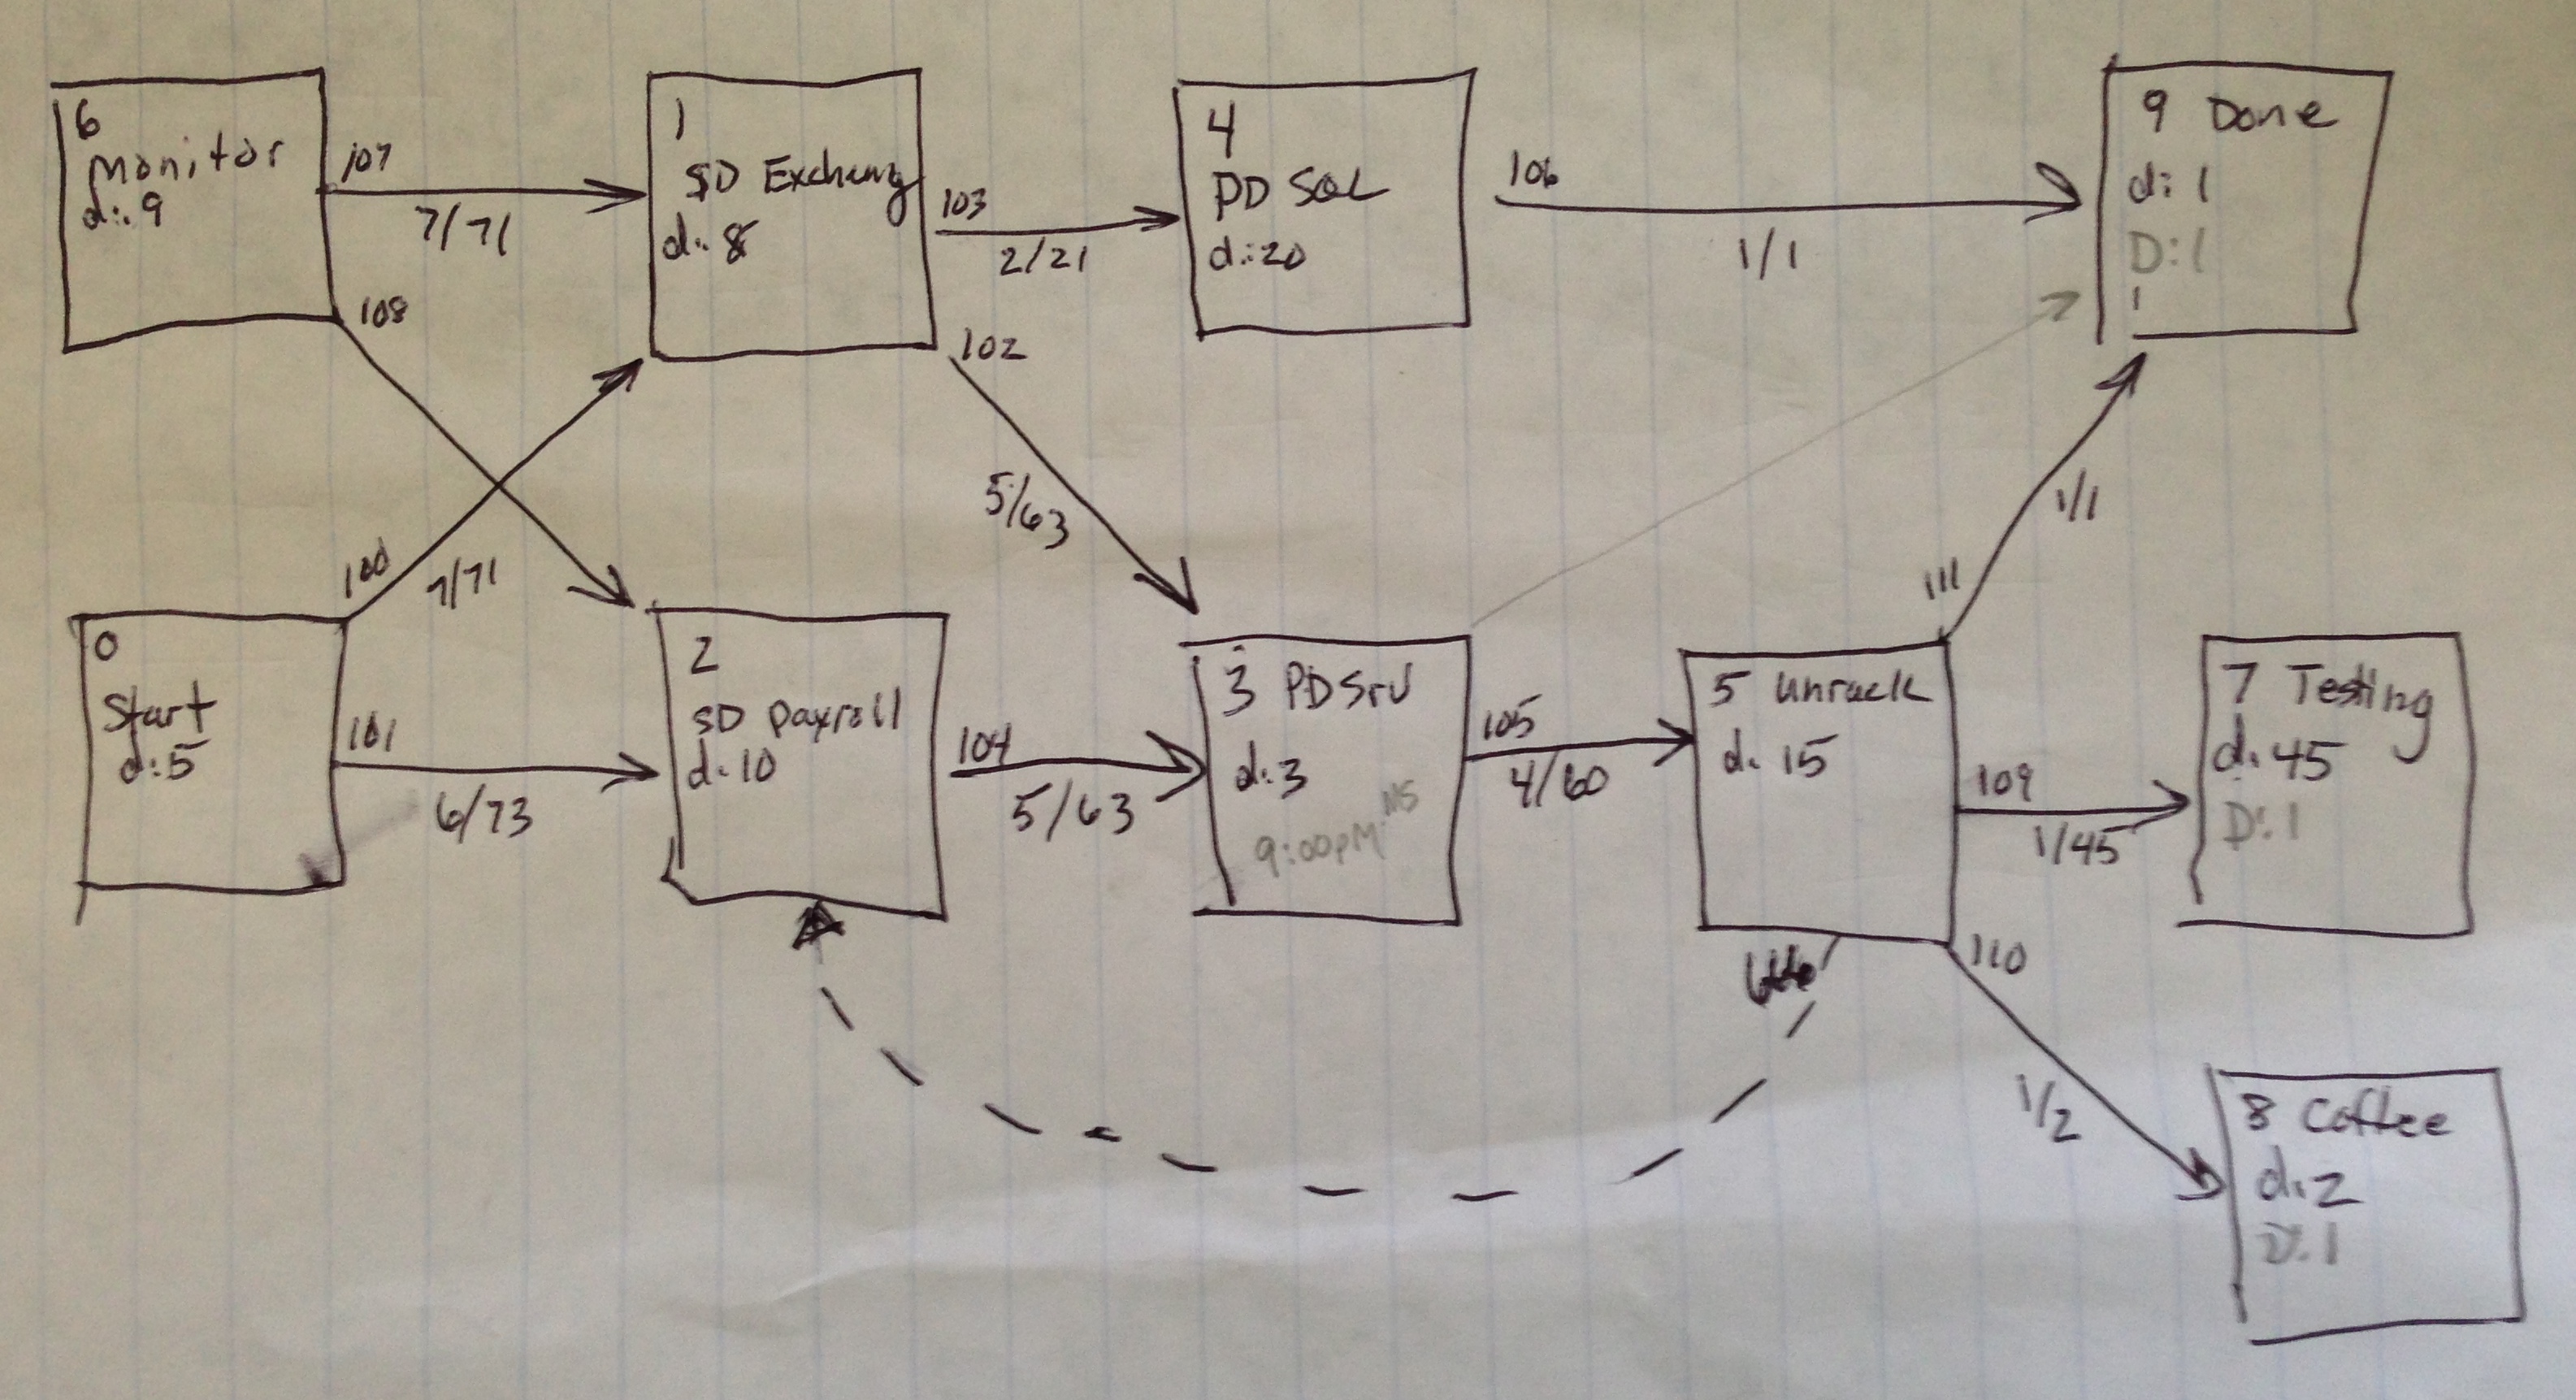 6
Monitor
d:.9
107
7/71
108
1
SD Exchang
d:.8
103
2/21
102
5/63
4
PD SQL
d:.20
106
1/1
9 Done
d:1
D:1
1
0
Start
d:5
100
7/71
101
6/73
2
SD Payroll
d:.10
104
5/63
3 PDSrv
d:.3
9:00PM MS
105
4/60
5 Unrack
d. 15
111
1/1
109
1/45
110
1/2
7 Testing
d:.45
D:.1
8 Coffee
d:.2
D:.1